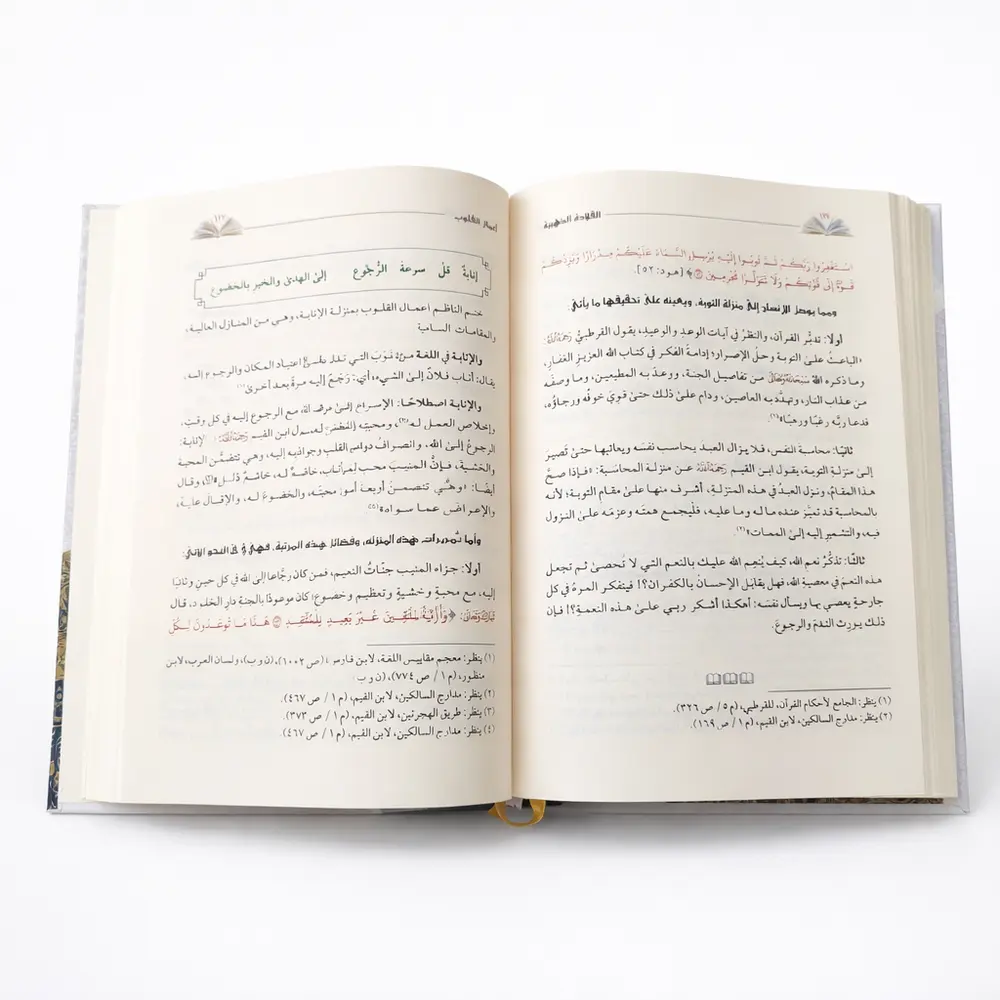 القلادة الذهبية
استغفروا ربكم ثم توبوا إليه يرسل السماء عليكم مدرارا ويزدكم
قوة إلى قوتكم ولا تتولوا مجرمين ﴾ [هود: ٥٢].
ومما يوصل الإنسان إلى منزلة التوبة، ويعينه على تحقيقها ما يأتي:
أولًا: تدبُّر القرآن، والنظرُ في آيات الوعدِ والوعيدِ، يقول القرطبيُّ رَحِمَهُ اللَّهُ:
«الباعثُ على التوبة وحلِّ الإصرار؛ إدامةُ الفكر في كتاب الله العزيزِ الغفارِ،
وما ذكره اللهُ سُبْحَانَهُ وَتَعَالَى من تفاصيل الجنة، ووعد به المطيعين، وما وصفَه
من عذاب النار، وتهدَّد به العاصين، ودام على ذلك حتى قويَ خوفُه ورجاؤه،
فدعا ربَّه رغبًا ورهبًا»(١).
ثانيًا: محاسبة النفس، فلا يزال العبدُ يحاسب نفسَه ويعاتبها حتىٰ تَصيرَ
إلىٰ منزلةِ التوبةِ، يقول ابن القيم رَحِمَهُ اللَّهُ عن منزلة المحاسبة: «فإذا صحَّ
هذا المقامُ، ونزل العبدُ في هذه المنزلةِ، أشرف منها علىٰ مقام التوبة؛ لأنه
بالمحاسبة قد تميَّز عنده ما له وما عليه، فليجمع همتَه وعزمَه علىٰ النزول
فيه، والتشمير إليه إلىٰ الممات»(٢).
ثالثًا: تذكُّرُ نعم الله، كيف يُنعِم الله عليك بالنعم التي لا تُحصىٰ ثم تجعل
هذه النعمَ في معصية الله، فهل يقابَل الإحسان بالكفران؟! فيتفكر المرءُ في كل
جارحةٍ يعصي بها ويسأل نفسَه: أهكذا أشكر ربي علىٰ هذه النعمة؟! فإن
ذلك يورِث الندمَ والرجوعَ.
(١) ينظر: الجامع لأحكام القرآن، للقرطبي، (م ٥ / ص ٣٢٦).
(٢) ينظر: مدارج السالكين، لابن القيم، (م ١ / ص ١٦٩).
أعمال القلوب
إنابةٌ قلْ سرعةُ الرُّجُوعِ إلىٰ الهدىٰ والخير بالخضوعِ
ختم الناظم أعمال القلوب بمنزلة الإنابة، وهي من المنازل العالية،
والمقامات
والإنابة في اللغة اعتياد المكان والرجوع إليه،
يقال: أناب فلانٌ إلىٰ الشيء، أي: رَجَعَ إليه مرةً بعد أخرىٰ(١).
والإنابة اصطلاحًا: الإسراع إلىٰ الله، مع الرجوع إليه في كل وقتٍ،
وإخلاص العمل له(٢)، ومحبته ابن القيم رَحِمَهُ اللَّهُ: الإنابة:
الرجوعُ إلىٰ الله، وانصرافُ دواعي القلب وجواذبه إليه، وهي تتضمَّن المحبة
والخشية، فإنَّ المنيبَ محب لمن أناب، خاضعٌ له، خاشعٌ ذليل»(٣)، وقال
أيضًا: «وهي تتضمن أربعة أمور: محبتَه، والخضوعَ له، والإقبال عليه،
والإعراض عما سواه»
وأما هذه المنزلة، وفضائل هذه المرتبة، فهي الآتي:
أولًا: جزاء المنيب جنَّاتُ النعيم، فمن كان رجَّاعًا إلىٰ الله في كل حينٍ وتائبًا
إليه، مع محبةٍ وخشيةٍ وتعظيمٍ وخضوعٍ؛ كان موعودًا بالجنةِ دارِ الخلودِ، قال
﴿ غير بعيد هذا ما توعدون لكل
(١) ينظر: معجم مقاييس اللغة، لابن فارس، (ص ١٠٠٢)، (ن و ب)، ولسان العرب، لابن
منظور، (م ١ / ص ٧٧٤)، (ن و ب).
(٢) ينظر: مدارج السالكين، لابن القيم، (م ١ / ص ٤٦٧).
(٣) ينظر: طريق الهجرتين، لابن القيم، (م ١ / ص ٣٧٣).
(٤) ينظر: مدارج السالكين، لابن القيم، (م ١ / ص ٤٦٧).